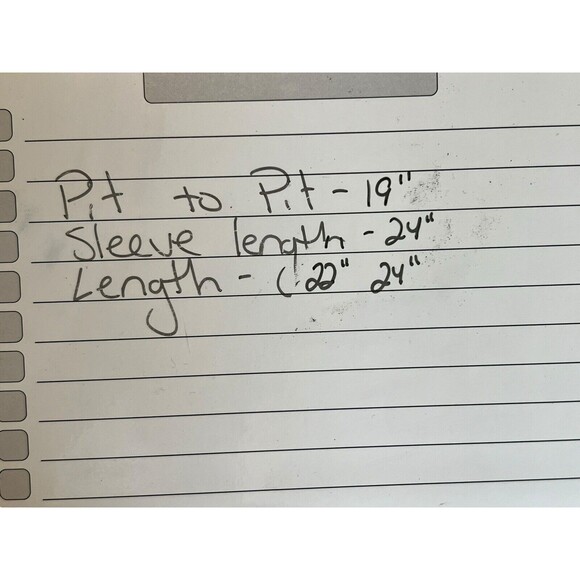 Pit to Pit - 19"
Sleeve length - 24"
Length - ( 22" 24"